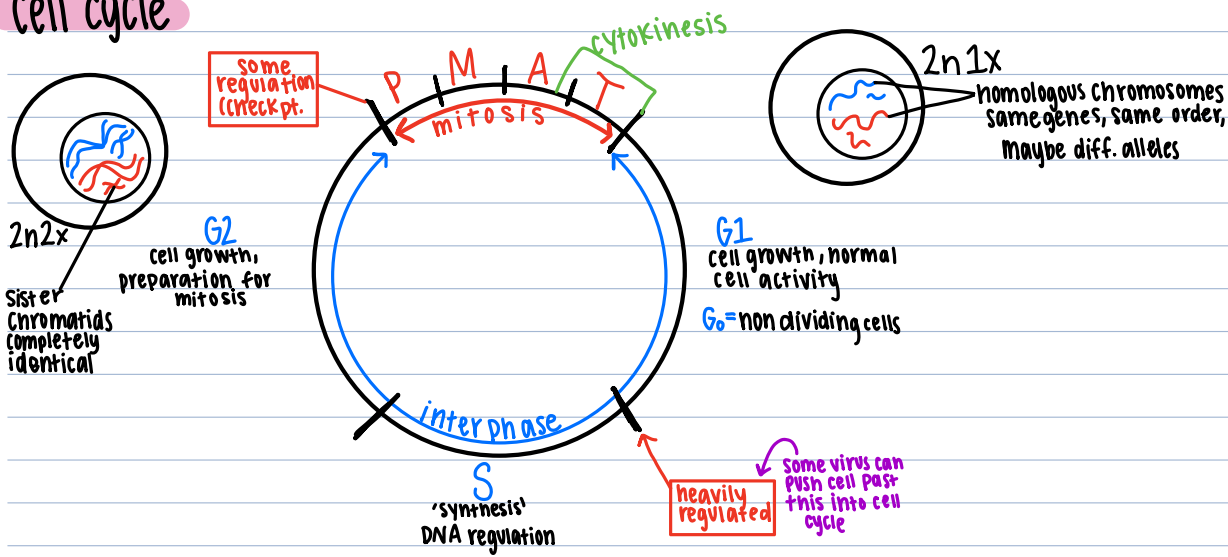 cell cycle
some
regulation
(checkpt.
P M A T
cytokinesis
mitosis
2n1x
homologous chromosomes
same genes, same order,
maybe diff. alleles
2n2x
sister
chromatids
completely
identical
G2
cell growth,
preparation for
mitosis
G1
cell growth, normal
cell activity
G₀= non dividing cells
interphase
S
'synthesis'
DNA regulation
heavily
regulated
some virus can
push cell past
this into cell
cycle